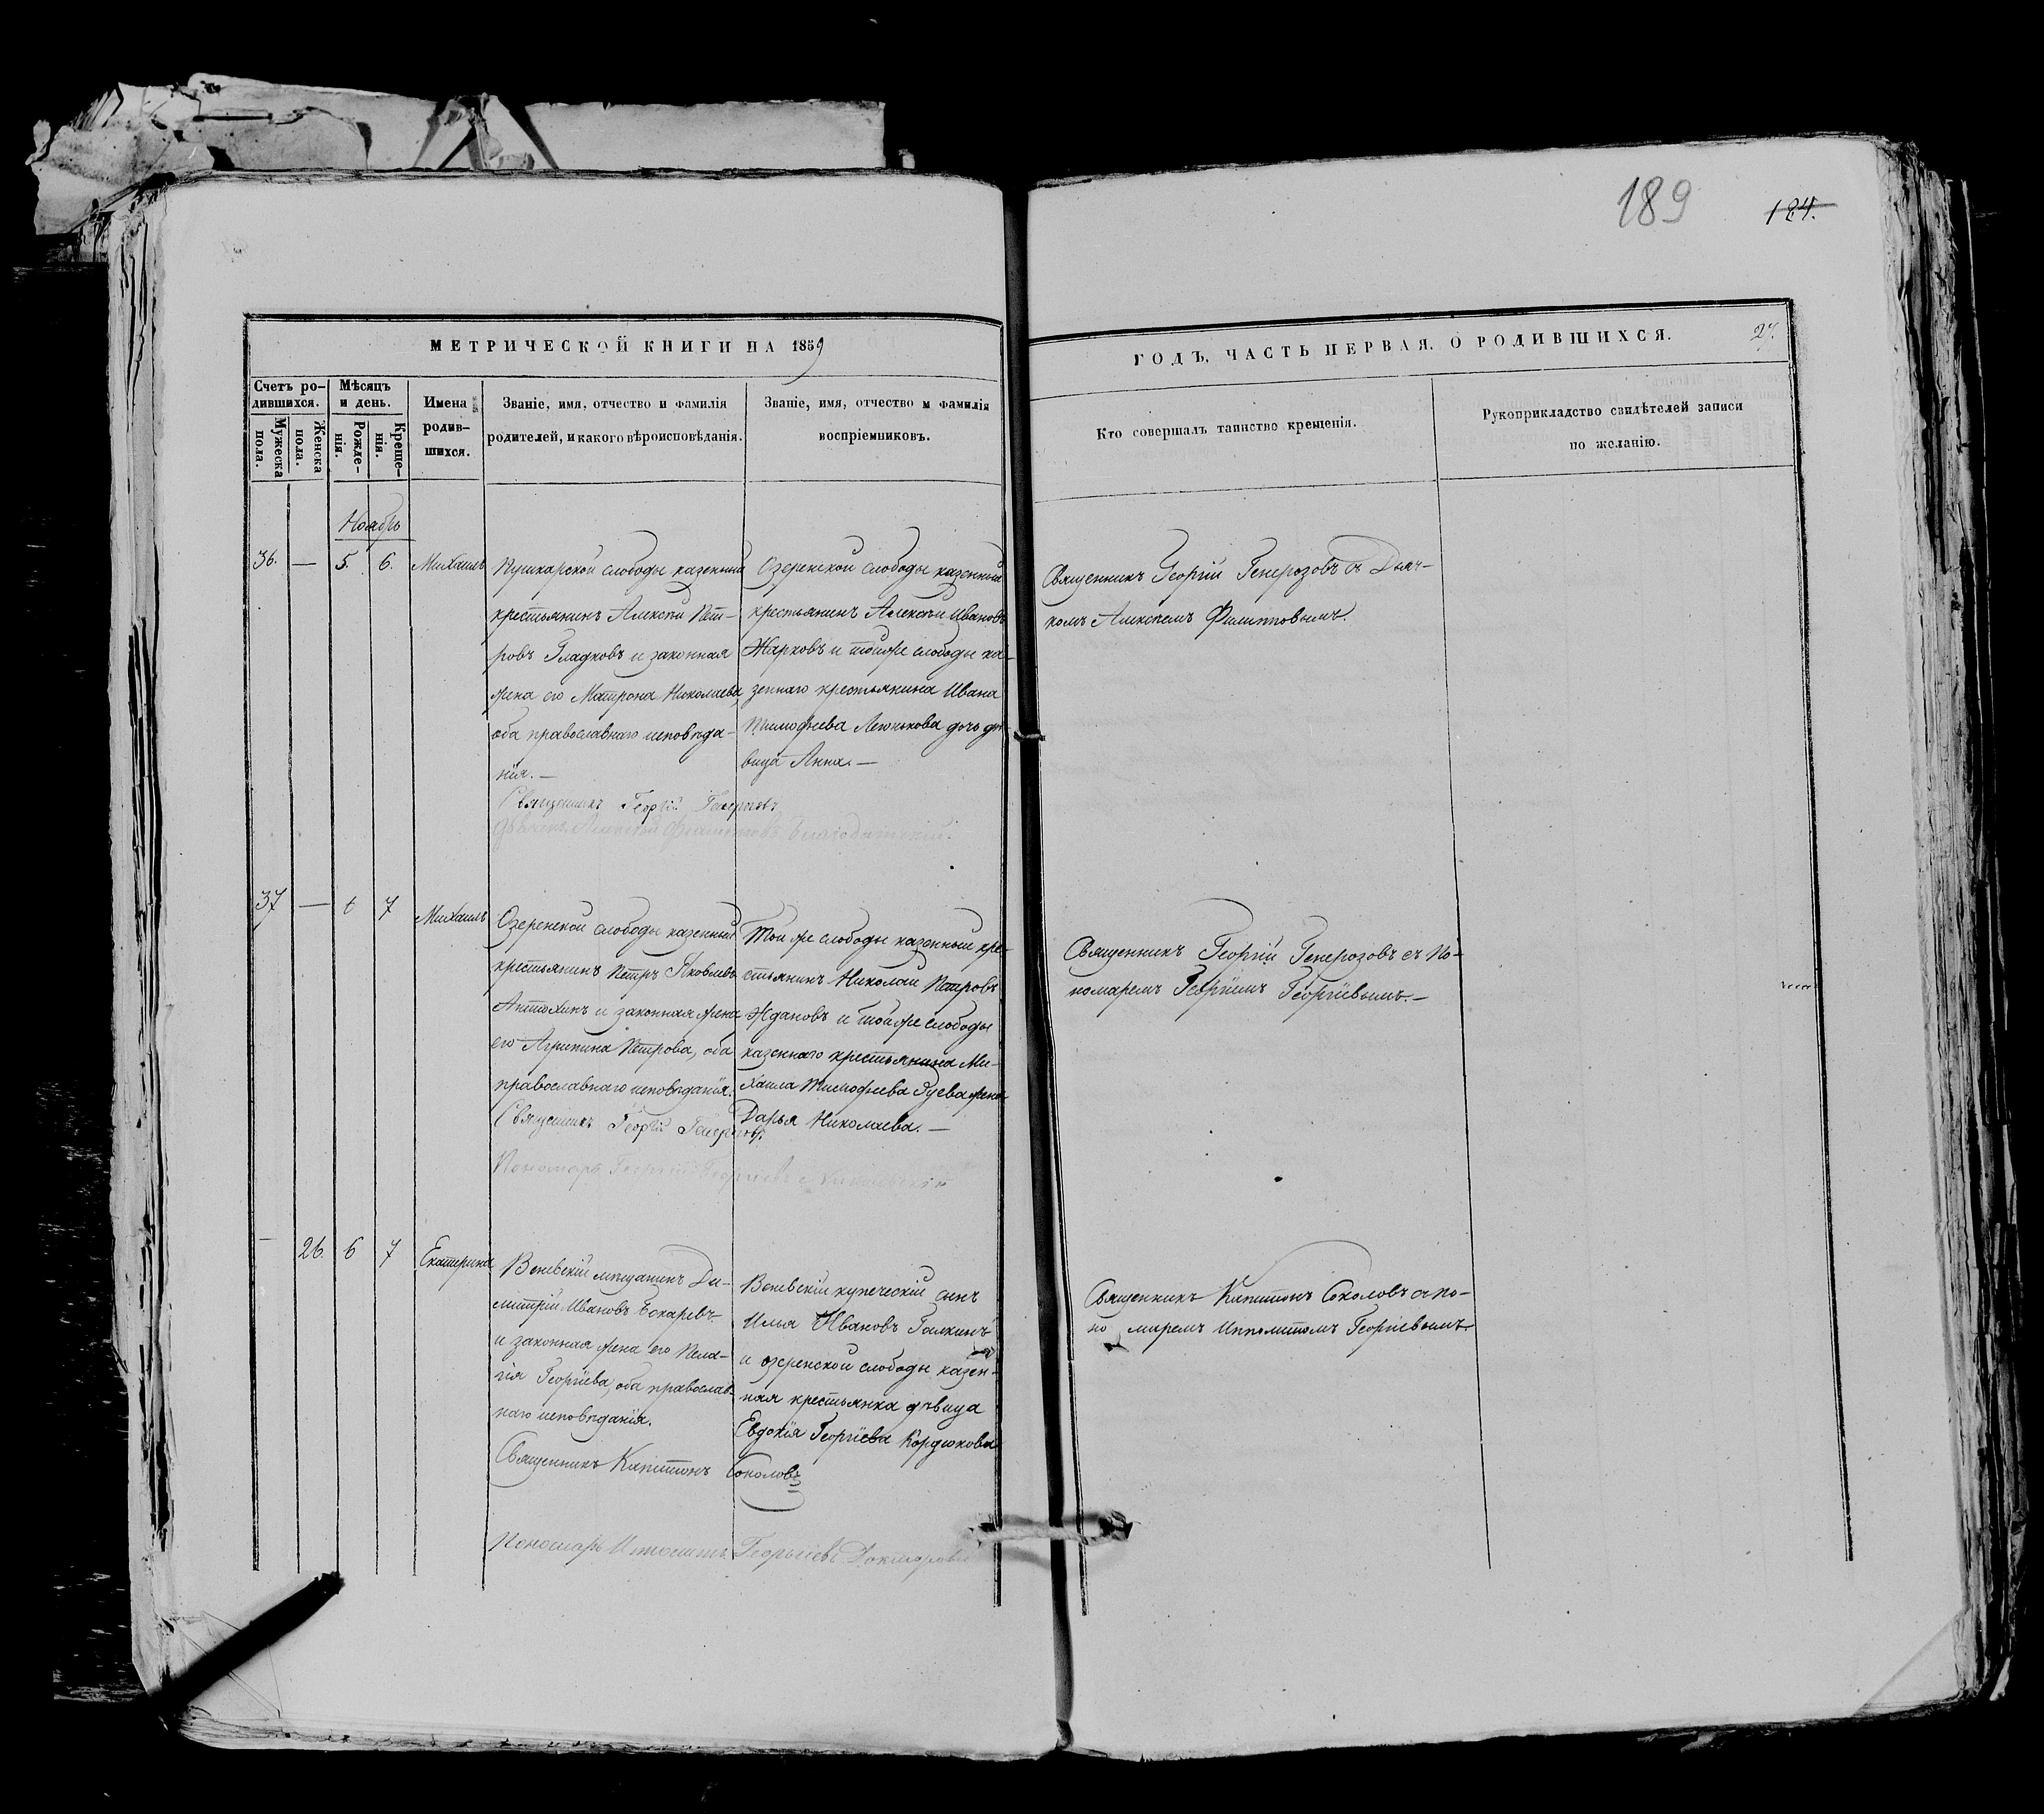 189
124.
МЕТРИЧЕСКОЙ КНИГИ НА 1859
ГОДЪ, ЧАСТЬ ПЕРВАЯ, О РОДИВШИХСЯ.
27.
Счетъ ро-
дившихся.
Мужеска пола.
Женска пола.
Мѣсяцъ
и день.
Рожде-
нія.
Креще-
нія.
Имена
родив-
шихся.
Званіе, имя, отчество и фамилія
родителей, и какого вѣроисповѣданія.
Званіе, имя, отчество и фамилія
воспріемниковъ.
Кто совершалъ таинство крещенія.
Рукоприкладство свидѣтелей записи
по желанію.
Ноябрь
36. — 5. 6. Михаилъ
Пушкарской слободы казенный
крестьянинъ Алексѣй Пет-
ровъ Гладковъ и законная
жена его Матрона Николаева,
оба православнаго исповѣда-
нія. —
Священникъ Георгій Генерозовъ
Дьячекъ Алексѣй Филипповъ Благодатскій.
Озеренской слободы казенный
крестьянинъ Алексѣй Ивановъ
Жарковъ и тойже слободы ка-
зеннаго крестьянина Ивана
Тимофѣева дочь дѣ-
вица Анна. —
Священникъ Георгій Генерозовъ съ Дьяч-
комъ Алексѣемъ Филипповымъ.
37 — 6 7 Михаилъ
Озеренской слободы казенный
крестьянинъ Петръ Яковлевъ
Антохинъ и законная жена
его Агрипина Петрова, оба
православнаго исповѣданія.
Священникъ Георгій Генерозовъ
Пономарь Георгій Георгіевъ Никольскій
Той же слободы казенный кре-
стьянинъ Николай Петровъ
Ждановъ и тойже слободы
казеннаго крестьянина Ми-
хаила Тимофѣева Зуева жена
Дарья Николаева. —
Священникъ Георгій Генерозовъ съ По-
номаремъ Георгіемъ Георгіевымъ. —
— 26. 6 7 Екатерина
Веневскій мѣщанинъ Ди-
митрій Ивановъ
и законная жена его Пела-
гія Георгіева, оба православ-
наго исповѣданія.
Священникъ Капитонъ Соколовъ
Пономарь Ипполитъ Георгіевъ Докторовъ
Веневскій купеческій сынъ
Илья Ивановъ Галкинъ
и озеренской слободы казен-
ная крестьянка дѣвица
Евдокія Георгіева Кордюкова
Священникъ Капитонъ Соколовъ съ по-
но маремъ Ипполитомъ Георгіевымъ.